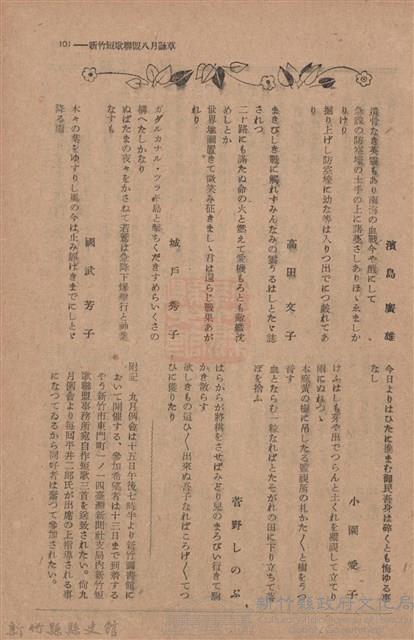 新竹短歌聯盟八月詠草——101
濱島廣雄
遺骨なき英靈もあり南海の血戰今や酣にして
急設の防空壕の土手の上に諸葉さしありほゝゑましか
りけり
掘り上げし防空壕に幼な等は入りつ出でにつ戲れてあ
り
高田文子
まきびしき戰に觸れずみんなみの雲うるはしとたゞ誌
されつ
二十路にも滿たぬ命の火と燃えて愛機もろとも敵艦沈
めしとか
世界地圖置きて微笑み征きましゝ君は還らじ戰果あが
れり
城戸秀子
ガダルカナル・ツラギ島と擊ちくだきすめらいくさの
構へたしかなり
ぬばたまの夜々をかさねて若鷲は急降下爆擊行と神業
なすも
國武芳子
木々の葉をゆすりし風の今は止み靜けきまでにしとゞ
降る雨
今日よりはひたに進まむ御民吾身は碎くとも悔ゆる事
なし
小園愛子
けふはしも芽や出でつらんと土くれを凝視して立てり
雨にぬれつゝ
本島黃の樹に吊したる監視所の札かたく〵と樹をうつ
音す
血とならむ一粒なればとたそがれの田に下り立ちて落
ぼを拾ふ
菅野しのぶ
はらからが將棋をさせばみどり兒のまろび行きて駒
かき散らす
欲しきもの這ひく〵出來ぬ吾子なればころげく〵てつ
ひに獲りたり
附記　九月例會は十五日午後七時半より新竹圖書館に
おいて開催する、參加希望者は十三日まで到着する
やう新竹市東門町一ノ一四臺灣新聞社支局內新竹短
歌聯盟事務所宛自作短歌三首を送致されたい。尙九
月例會より每回平井二郎氏が出席の上指導される事
になつてゐるから同好者は奮つて參加されたい。
新竹縣政府文化局
新竹縣縣史館